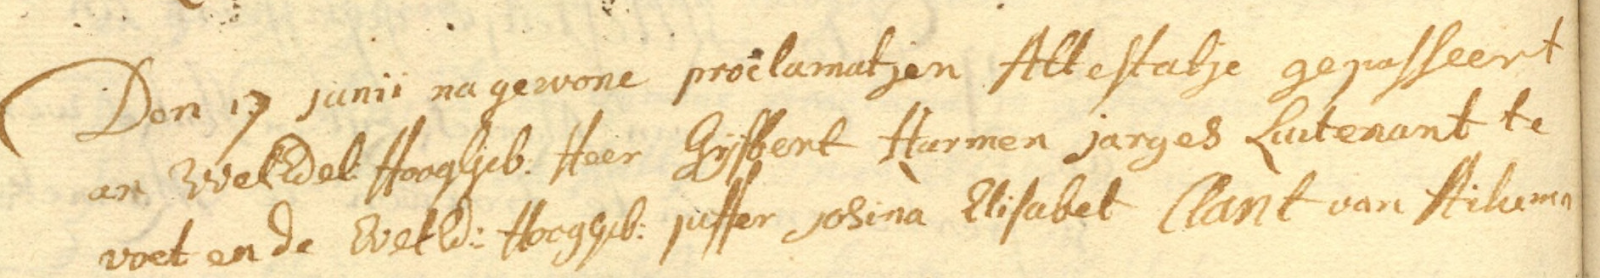 Den 17 junii na gewone proclamatjen Attestatje gepasseert
an WelEdel: Hooggeb: Heer Gijsbert Harmen jarges Luitenant te
voet en de WelEd: Hooggeb: juffer josina Elisabet Clant van Stikuma